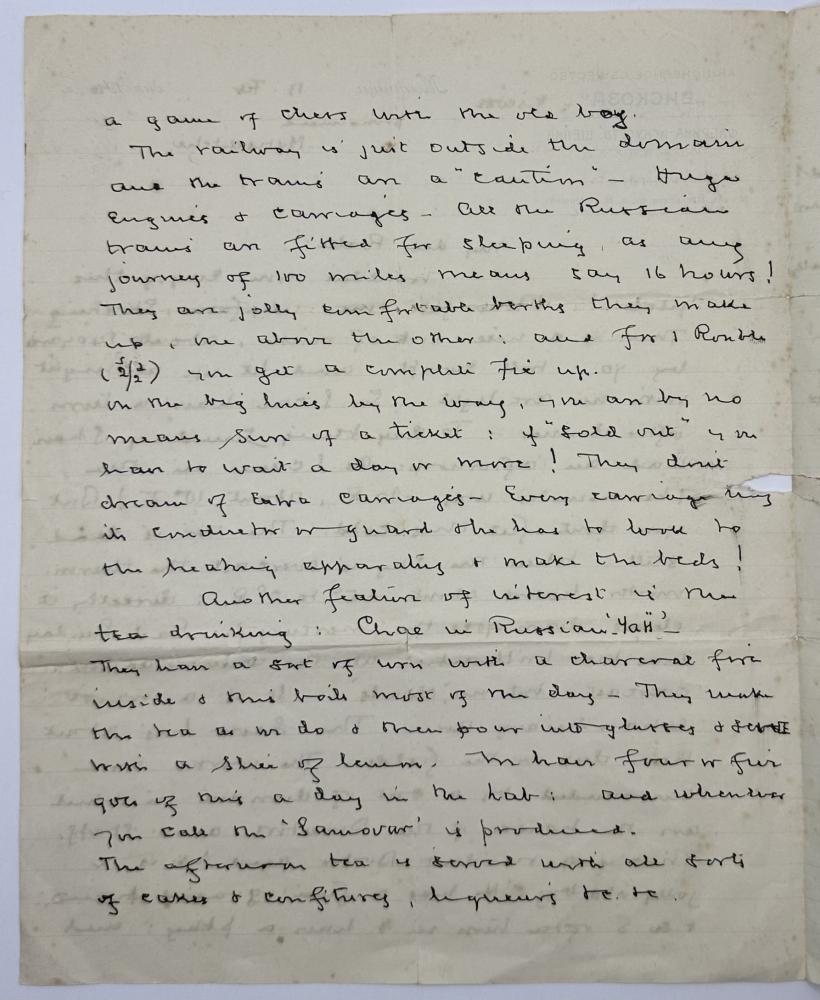 a game of chess with the old boy.
The railway is just outside the domain
and the trains are a "caution" – Huge
Engines & carriages – All the Russian
trains are fitted for sleeping, as any
journey of 100 miles means say 16 hours!
They are jolly comfortable berths they make
up, one above the other: and for 1 Rouble
(2/2) you get a complete fix up.
On the big lines by the way, you are by no
means sure of a ticket: if "sold out" you
have to wait a day or more! They don't
dream of Extra carriages – Every carriage
its conductor or guard & he has to look to
the heating apparatus & make the beds!
Another feature of interest is the
tea drinking: Chae in Russian
They have a sort of urn with a charcoal fire
inside & this boils most of the day – They make
the tea as we do & then pour into glasses & serve
with a slice of lemon. We have four or five
goes of this a day in the lab: and whenever
you call the 'Samovar' is produced.
The afternoon tea is served with all sorts
of cakes & confitures, liqueurs &c. &c.